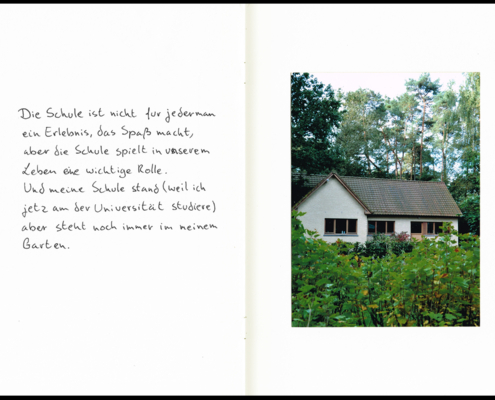 Die Schule ist nicht fur jederman
ein Erlebnis, das Spaß macht,
aber die Schule spielt in unserem
Leben eine wichtige Rolle.
Und meine Schule stand (weil ich
jetz am der Universität studiere)
aber steht noch immer im meinem
Garten.